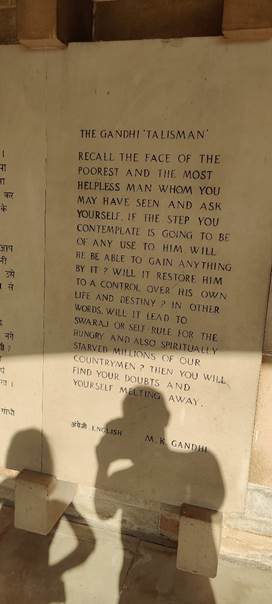 THE GANDHI 'TALISMAN'
RECALL THE FACE OF THE
POOREST AND THE MOST
HELPLESS MAN WHOM YOU
MAY HAVE SEEN AND ASK
YOURSELF, IF THE STEP YOU
CONTEMPLATE IS GOING TO BE
OF ANY USE TO HIM WILL
HE BE ABLE TO GAIN ANYTHING
BY IT ? WILL IT RESTORE HIM
TO A CONTROL OVER HIS OWN
LIFE AND DESTINY ? IN OTHER
WORDS, WILL IT LEAD TO
SWARAJ OR SELF RULE FOR THE
HUNGRY AND ALSO SPIRITUALLY
STARVED MILLIONS OF OUR
COUNTRYMEN ? THEN YOU WILL
FIND YOUR DOUBTS AND
YOURSELF MELTING AWAY.
अंग्रेजी : ENGLISH M. K. GANDHI